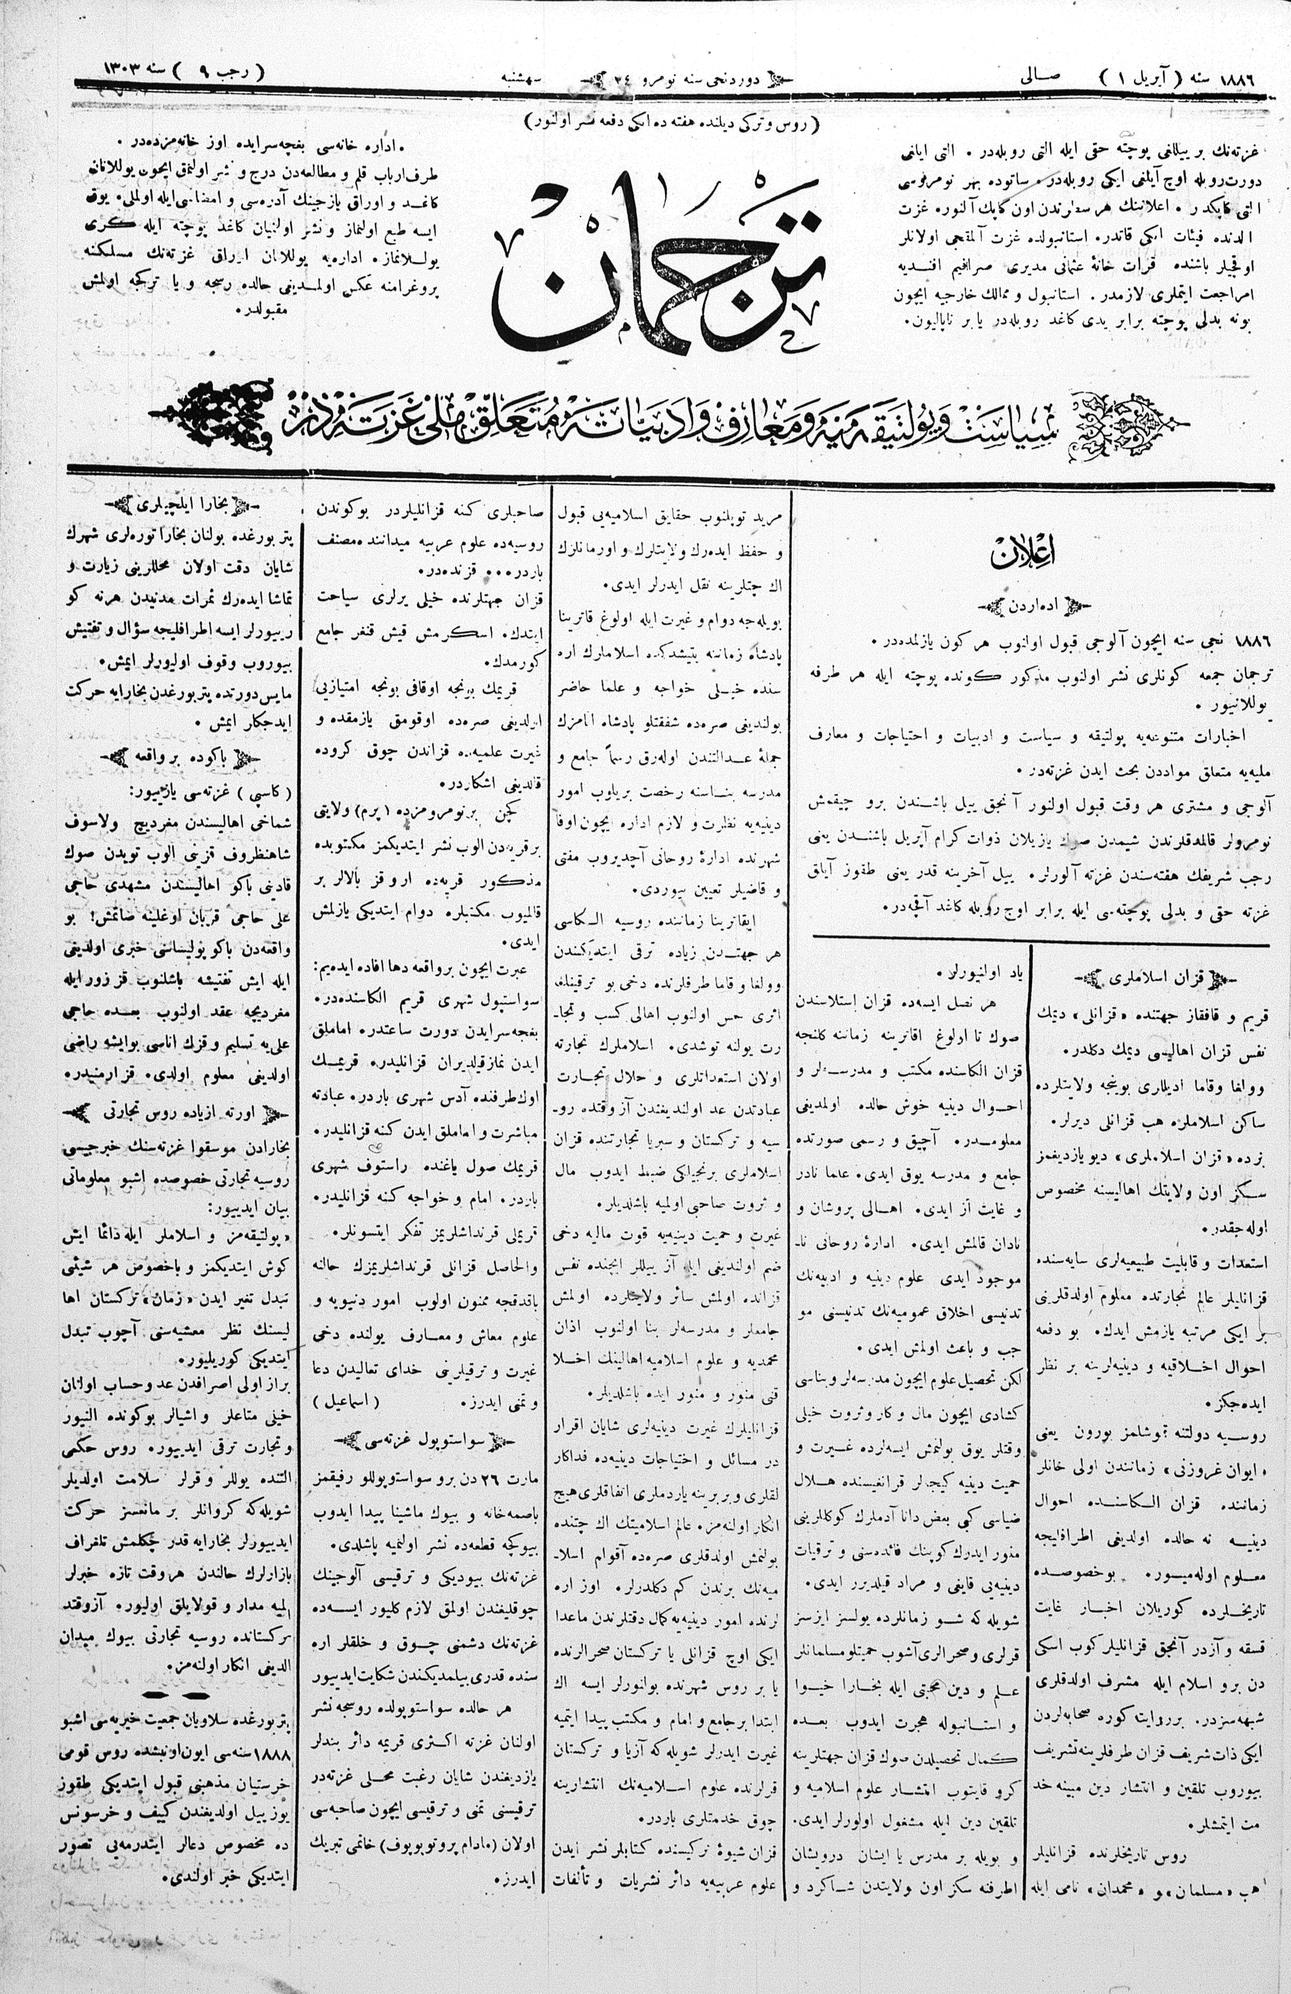 ١٨٨٦ سنه ( آپريل ١ ) صالی
دوردنجی سنه نومرو ٢٤
سه‌شنبه
( رجب ٩ ) سنه ١٣٠٣
(روس و تركی ديلنده هفته ده ايكی دفعه نشر اولنور)
غزته‌نك بر ييللغی پوچته حقی ايله التی روبله‌در . التی ايلغی
دورت روبله اوچ آيلغی ايكی روبله‌در. ساتوده بهر نومروسی
التی كاپكدر . اعلاننك هر سطرندن اون كاپك آلنور. غزت
الدنده فيئات ايكی قاتدر. استانبولده غزت آلمقجی اولانلر
اوقجيلر باشنده قرائت خانهٔ عثمانی مديری صرافيم افنديه
مراجعت ايتملری لازمدر. استانبول و ممالك خارجيه ايچون
بونه بدلی پوچته برابر يدی كاغد روبله‌در يا بر ناپاليون.
ترجمان
. اداره خانه‌سی بغچه‌سرايده اوز خانه‌مزده‌در .
طرف ارباب قلم و مطالعه‌دن درج و نشر اولنمق ايچون يوللانان
كاغد و اوراق يازجينك آدره‌سی و امضاسی ايله اولملی. يوق
ايسه طبع اولنماز و نشر اولنميان كاغد پوچته ايله كری
يوللانماز. اداره‌يه يوللانان اوراق غزته‌نك مسلكنه
پروغرامنه عكس اولمديغی حالده رسجه و يا تركجه اولمش
مقبولدر.
سياست و پولتيقه‌مزيه و معارف و ادبياته متعلق ملی غزته‌مزدر
اعلان
اداره‌دن
١٨٨٦ نجی سنه ايچون آلوجی قبول اولنوب هر كون يازلمده‌در.
ترجمان جمعه كونلری نشر اولنوب مذكور كونده پوچته ايله هر طرفه
يوللانيور .
اخبارات متنوعه‌يه پولتيقه و سياست و ادبيات و احتياجات و معارف
مليه‌يه متعلق موادن بحث ايدن غزته‌در.
آلوجی و مشتری هر وقت قبول اولنور آنجق ييل باشندن برو چيقمش
نومرولر قالمدقلرندن شيمدن صوك يازيلان ذوات كرام آپريل باشندن يعنی
رجب شريفك هفته‌سندن غزته آلورلر. ييل آخرينه قدر يعنی طقوز آيلق
غزته حقی و بدلی پوچته‌سی ايله برابر اوچ روبله كاغد آقچه‌در.
قزان اسلاملری
قريم و قافقاز جهتنده «قزانلی» ديمك
نفس قزان اهاليسی ديمك دكلدر.
وولغا وقاما اديللاری بوينجه ولايتلرده
ساكن اسلاملره هب قزانلی ديرلر.
بزده «قزان اسلاملری» ديو يازديغمز
سكز اون ولايتك اهاليسنه مخصوص
اوله‌جقدر.
استعدات و قابليت طبيعيه‌لری سايه‌سنده
قزانليلر عالم تجارتده معلوم اولدقلرينی
بر ايكی مرتبه يازمش ايدك. بو دفعه
احوال اخلاقيه و دينيه‌لرينه بر نظر
ايده‌جكز.
روسيه دولتنه قوشلمز بورون يعنی
«ايوان غروزنی» زمانندن اولی خانلر
زماننده قزان الكاسنده احوال
دينيه نه حالده اولديغی اطرافليجه
معلوم اوله‌ميور. بوخصوصده
تاريخلرده كوريلان اخبار غايت
قسقه و آزدر آنجق قزانليلر كوب اسكی
دن برو اسلام ايله مشرف اولدقلری
شبهه‌سزدر. بر روايت كوره صحابه‌لردن
ايكی ذات شريف قزان طرفلرينه تشريف
بيوروب تلقين و انتشار دين مبينه خد
مت ايتمشلر.
روس تاريخلرنده قزانليلر
هب «مسلمان» و «محمدان» نامی ايله
ياد اولنيورلر.
هر نصل ايسه‌ده قزان استلاسندن
صوك تا اولوغ اقاترينه زماننه كلنجه
قزان الكاسنده مكتب و مدرسه‌لر و
احوال دينيه خوش حالده اولمديغی
معلومدر. آچيق و رسمی صورتده
جامع و مدرسه يوق ايدی. علما نادر
و غايت آز ايدی. اهالی پروشان و
نادان قالمش ايدی. ادارهٔ روحانی نا-
موجود ايدی علوم دينيه و ادبيه‌نك
تدنيسی اخلاق عموميه‌نك تدنيسنی مو
جب و باعث اولمش ايدی.
لكن تحصيل علوم ايچون مدرسه‌لر و بناسی
كشادی ايچون مال و كار و ثروت خيلی
وقتلر يوق بولنمش ايسه‌لرده غيرت و
حميت دينيه كيجه‌لر قرانغيسنده هلال
ضياسی كبی بعض دانا آدملرك كوكللرينی
منور ايدرك كوپنك فائده‌سنی و ترقيات
دينيه‌يی قايغی و مراد قيلدرر ايدی.
شويله كه شو زمانلرده يولسز ايزسز
قرلری و صحرالری آشوب حميتلو مسلمانلر
علم و دين محبتی ايله بخارا خيوا
و استانبوله هجرت ايدوب بعده
كمال تحصيلدن صوك قزان جهتلرينه
كرو قايتوب انتشار علوم اسلاميه و
تلقين دين ايله مشغول اولورلر ايدی.
و بويله بر مدرس يا ايشان درويشان
اطرفنه سكز اون ولايتدن شاكرد و
مريد توپلنوب حقايق اسلاميه‌يی قبول
و حفظ ايده‌رك ولايتلرك و اورمانلرك
اك چتلرينه نقل ايدرلر ايدی.
بويله‌جه دوام و غيرت ايله اولوغ قاترينا
پادشاه زماننه يتيشدكده اسلاملرك اره
سنده خيلی خواجه و علما حاضر
بولنديغی صره‌ده شفقتلو پادشاه انامزك
جملهٔ عدالتندن اوله‌رق رسماً جامع و
مدرسه بناسنه رخصت بريلوب امور
دينيه‌يه نظارت و لازم اداره ايچون اوفا
شهرنده ادارهٔ روحانی آچديروب مفتی
و قاضيلر تعيين بيوردی.
ايقاترينا زماننده روسيه الكاسی
هر جهتدن زياده ترقی ايتديكندن
وولغا و قاما طرفلرنده دخی بو ترقينك
اثری حس اولنوب اهالی كسب و تجا-
رت يولنه توشدی. اسلاملرك تجارته
اولان استعداتلری و حلال تجارت
عبادتدن عد اولنديغندن آز وقتده رو-
سيه و تركستان و سبريا تجارتنده قزان
اسلاملری برنجيلكی ضبط ايدوب مال
و ثروت صاحبی اولميه باشلديلر.
غيرت و حميت دينيه‌يه قوت ماليه دخی
ضم اولنديغی ايله آز ييللر ايچنده نفس
قزانده اولمش سائر ولايتلرده اولمش
جامعلر و مدرسه‌لر بنا اولنوب اذان
محمديه و علوم اسلاميه اهالينك اخلا
قنی منور و منور ايده باشلديلر.
قزانليلرك غيرت دينيه‌لری شايان اقرار
در مسائل و احتياجات دينيه‌ده فداكار
لقلری و بر برينه ياردملری اتفاقلری هيچ
انكار اولنه‌مز. عالم اسلاميتك اك چتنده
بولنمش اولدقلری صره‌ده آقوام اسلا-
ميه‌نك برندن كم دكلدرلر. اوز اره
لرنده امور دينيه‌يه كمال دقتلرندن ماعدا
ايكی اوچ قزانلی يا تركستان صحرالرنده
يا بر روس شهرنده بولنورلر ايسه اك
ابتدا بر جامع و امام و مكتب پيدا ايتميه
غيرت ايدرلر شويله كه آزيا و تركستان
قرلرنده علوم اسلاميه‌نك انتشارينه
چوق خدمتلری باردر.
قزان شيوهٔ تركيسنده كتابلر نشر ايدن
علوم عربيه‌يه دائر نشريات و تألفات
صاحبلری كنه قزانليلردر بوكوندن
روسيه‌ده علوم عربيه ميداننده مصنف
باردر... قزنده‌در.
قزان جهتلرنده خيلی يرلری سياحت
ايتدك. اسكرمش قيش قنفر جامع
كورمدك.
قريمك بونجه اوقافی بونجه امتيازيی
اولديغی صره‌ده اوقومق يازمقده و
غيرت علميه‌ده قزاندن چوق كروده
قالديغی اشكاردر.
كچن بر نومرومزده (پرم) ولايتی
بر قريه‌دن الوب نشر ايتديكمز مكتوبده
مذكور قريه‌ده اروقز بالالر بر
قالميوب مكتبلره دوام ايتديكی يازلمش
ايدی.
عبرت ايچون بر واقعه دها افاده ايده‌يم:
سواستپول شهری قريم الكاسنده‌در.
بغچه‌سرايدن دورت ساعتدر. اماملق
ايدن نماز قيلديران قزانليدر. قريمك
اوك طرفنده آدس شهری باردر. عبادته
مباشرت و اماملق ايدن كنه قزانليدر.
قريمك صول ياغنده راستوف شهری
باردر. امام و خواجه كنه قزانليدر.
قريملی قرنداشلريمز تفكر ايتسونلر.
والحاصل قزانلی قرنداشلريمزك حالنه
باقدقجه ممنون اولوب امور دنيويه و
علوم معاش و معارف يولنده دخی
غيرت و ترقيلرينی خدای تعاليدن دعا
و تمنی ايدرز. (اسماعيل)
سواستوپول غزته‌سی
مارت ٢٦ دن برو سواستوپوللو رفيقمز
باصمه‌خانه و بيوك ماشينا پيدا ايدوب
بيوكچه قطعه‌ده نشر اولنميه باشلدی.
غزته‌نك بيوديكی و ترقيسی آلوجينك
چوقليغندن اولمق لازم كليور ايسه‌ده
غزته‌نك دشمنی چوق و خلقلر اره
سنده قدری بيلمديكندن شكايت ايديیور
هر حالده سواستوپولده روسجه نشر
اولنان غزته اكثری قريمه دائر بندلر
يازديغندن شايان رغبت محلی غزته‌در
ترقيسنی تمنی و ترقيسی ايچون صاحبه‌سی
اولان (مادام پروتوپوپوف) خانمی تبريك
ايدرز.
بخارا ايلچيلری
پتربورغده بولنان بخارا توره‌لری شهرك
شايان دقت اولان محللرينی زيارت و
تماشا ايده‌رك ثمرات مدنيتدن هرنه كو
ريیورلر ايسه اطرافليجه سؤال و تفتيش
بيوروب وقوف اوليورلر ايمش.
مايس دورتده پتربورغدن بخارايه حركت
ايدجكلر ايمش .
باكوده بر واقعه
(كاسپی) غزته‌سی يازيیور:
شماخی اهاليسندن مغرديچ ولاسوف
شاهنظروف قزينی الوب تويدن صوك
قادينی باكو اهاليسندن مشهدی حاجی
علی حاجی قربان اوغلينه صاتمش! بو
واقعه‌دن باكو پوليساسی خبری اولديغی
ايله ايش تفتيشه باشلنوب قز زور ايله
مغرديچه عقد اولنوب بعده حاجی
علی‌يه تسليم و قزك اناسی بو ايشه راضی
اولديغی معلوم اولدی. قز ارمنيدر.
اورته ازياده روس تجارتی
بخارادن موسقوا غزته‌سنك خبرجيسی
روسيه تجارتی خصوصده اشبو معلوماتی
بيان ايديیور:
«پولتيقه‌مز و اسلاملر ايله دائما ايش
كوش ايتديكمز و باخصوص هر شيئی
تبدل تغير ايدن «زمان» تركستان اها
ليسنك نظر معشيه‌سنی آچوب تبدل
ايتديكی كوريليور.
براز اولی اصرافدن عد و حساب اولنان
خيلی متاعلر و اشيالر بوكونده النيور
و تجارت ترقی ايديیور. روس حكمی
التنده يوللر و قرلر سلامت اولديلر
شويله كه كروانلر بر مانعسز حركت
ايديیورلر بخارايه قدر چكلمش تلغراف
بازارلرك حالندن هر وقت تازه خبرلر
المیه مدار و قولايلق اوليور. آز وقتد
تركستانده روسيه تجارتی بيوك ميدان
الديغی انكار اولنه‌مز.
پتربورغده سلاويان جمعيت خيريه‌سی اشبو
١٨٨٨ سنه‌سی ايون اونبشده روس قومی
خرستيان مذهبنی قبول ايتديكی طقوز
يوز ييل اولديغندن كييف و خرسونس
ده مخصوص دعالر ايتدرمه‌يی تصور
ايتديكی خبر اولندی.